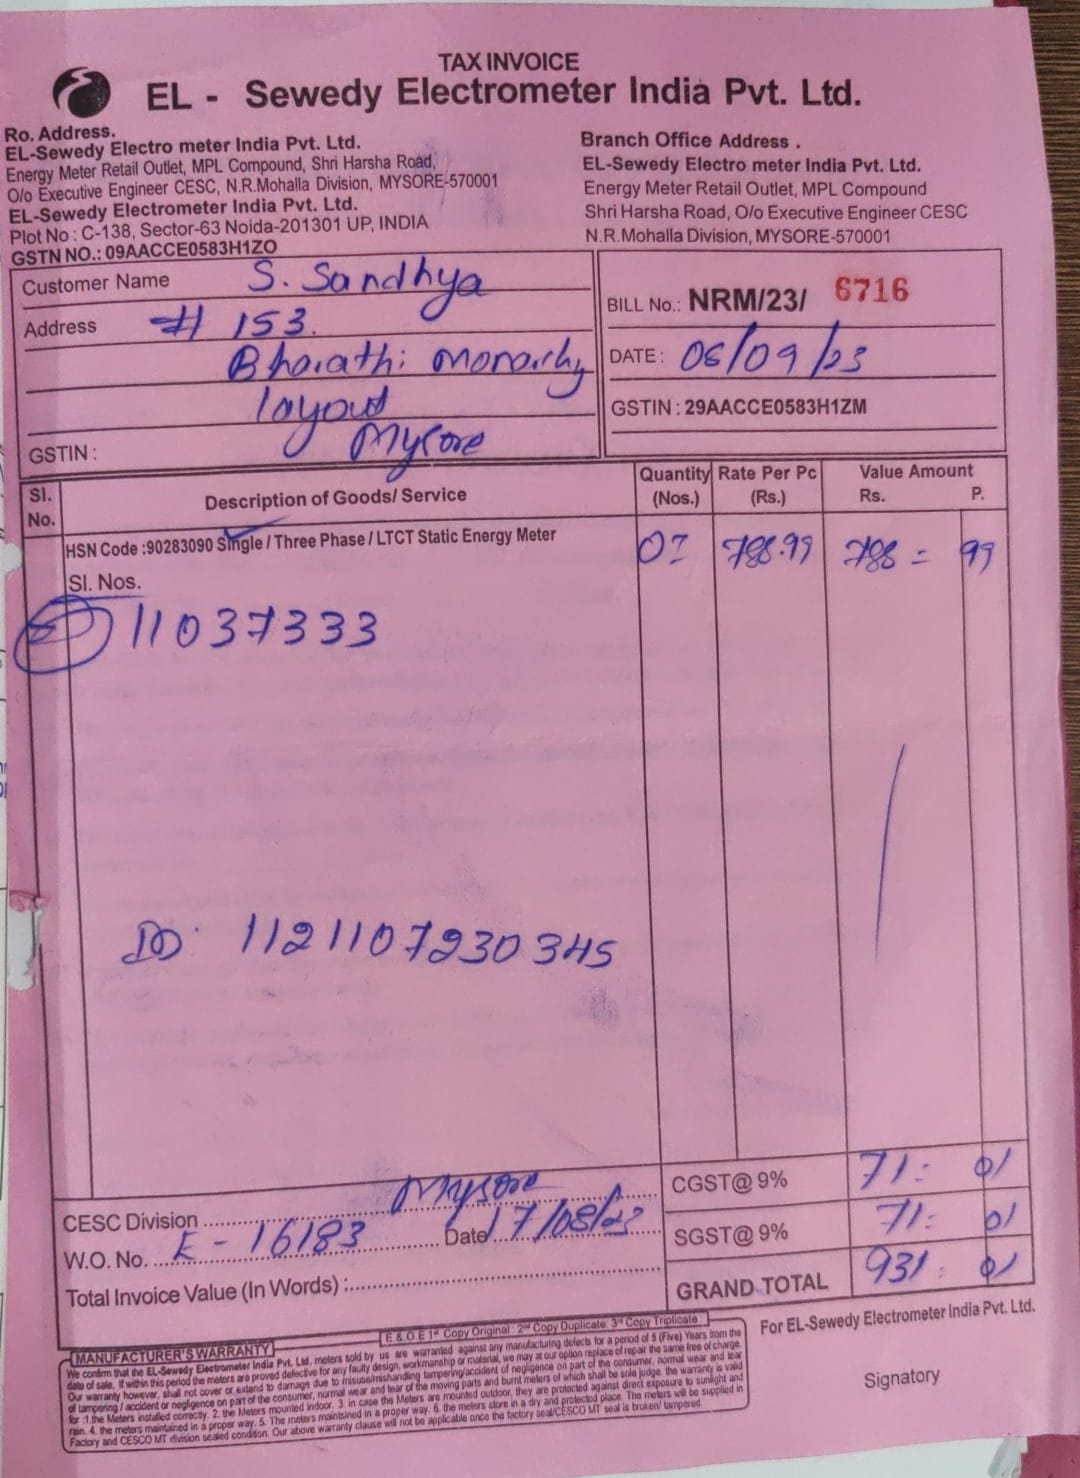 TAX INVOICE
EL - Sewedy Electrometer India Pvt. Ltd.
Ro. Address.
EL-Sewedy Electro meter India Pvt. Ltd.
Energy Meter Retail Outlet, MPL Compound, Shri Harsha Road,
O/o Executive Engineer CESC, N.R.Mohalla Division, MYSORE-570001
EL-Sewedy Electrometer India Pvt. Ltd.
Plot No : C-138, Sector-63 Noida-201301 UP, INDIA
GSTN NO.: 09AACCE0583H1ZO
Branch Office Address .
EL-Sewedy Electro meter India Pvt. Ltd.
Energy Meter Retail Outlet, MPL Compound
Shri Harsha Road, O/o Executive Engineer CESC
N.R.Mohalla Division, MYSORE-570001
Customer Name S. Sandhya
Address # 153.
Bharathi monarchy
layout
Mysore
GSTIN :
BILL No.: NRM/23/ 6716
DATE : 06/09/23
GSTIN : 29AACCE0583H1ZM
Sl. No. Description of Goods/ Service Quantity (Nos.) Rate Per Pc (Rs.) Value Amount Rs. P.
HSN Code :90283090 Single / Three Phase / LTCT Static Energy Meter 01 788.99 788 = 99
Sl. Nos.
11037333
DD: 1121107230345
CESC Division Mysore
W.O. No. E - 16183 Date 17/08/23
Total Invoice Value (In Words) :
CGST@ 9% 71: 01
SGST@ 9% 71: 01
GRAND TOTAL 931: 01
E & O E 1st Copy Original : 2nd Copy Duplicate: 3rd Copy Triplicate :
For EL-Sewedy Electrometer India Pvt. Ltd.
Signatory
MANUFACTURER'S WARRANTY
We confirm that the EL-Sewedy Electrometer India Pvt. Ltd. meters sold by us are warranted against any manufacturing defects for a period of 5 (Five) Years from the
date of sale. If within this period the meters are proved defective for any faulty design, workmanship or material, we may at our option replace of repair the same free of charge.
Our warranty however, shall not cover or extend to damage due to misuse/mishandling tampering/accident of negligence on part of the consumer, normal wear and tear
of tampering / accident or negligence on part of the consumer, normal wear and tear of the moving parts and burnt meters of which shall be sole judge. the warranty is valid
for :1.the Meters installed correctly. 2. the Meters mounted indoor. 3. in case the Meters are mounted outdoor, they are protected against direct exposure to sunlight and
rain. 4. the meters maintained in a proper way. 5. The meters maintained in a proper way. 6. the meters store in a dry and protected place. The meters will be supplied in
Factory and CESCO MT division sealed condition. Our above warranty clause will not be applicable once the factory seal/CESCO MT seal is broken/ tampered.